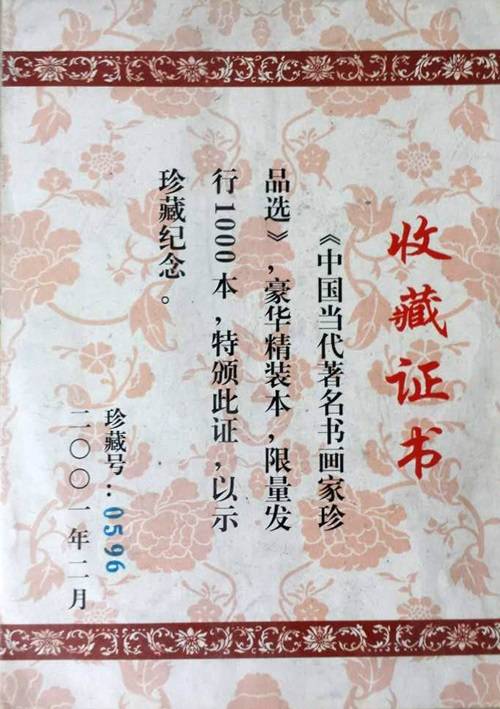 收藏证书
《中国当代著名书画家珍
品选》，豪华精装本，限量发
行1000本，特颁此证，以示
珍藏纪念。
珍藏号：0596
二〇〇一年二月